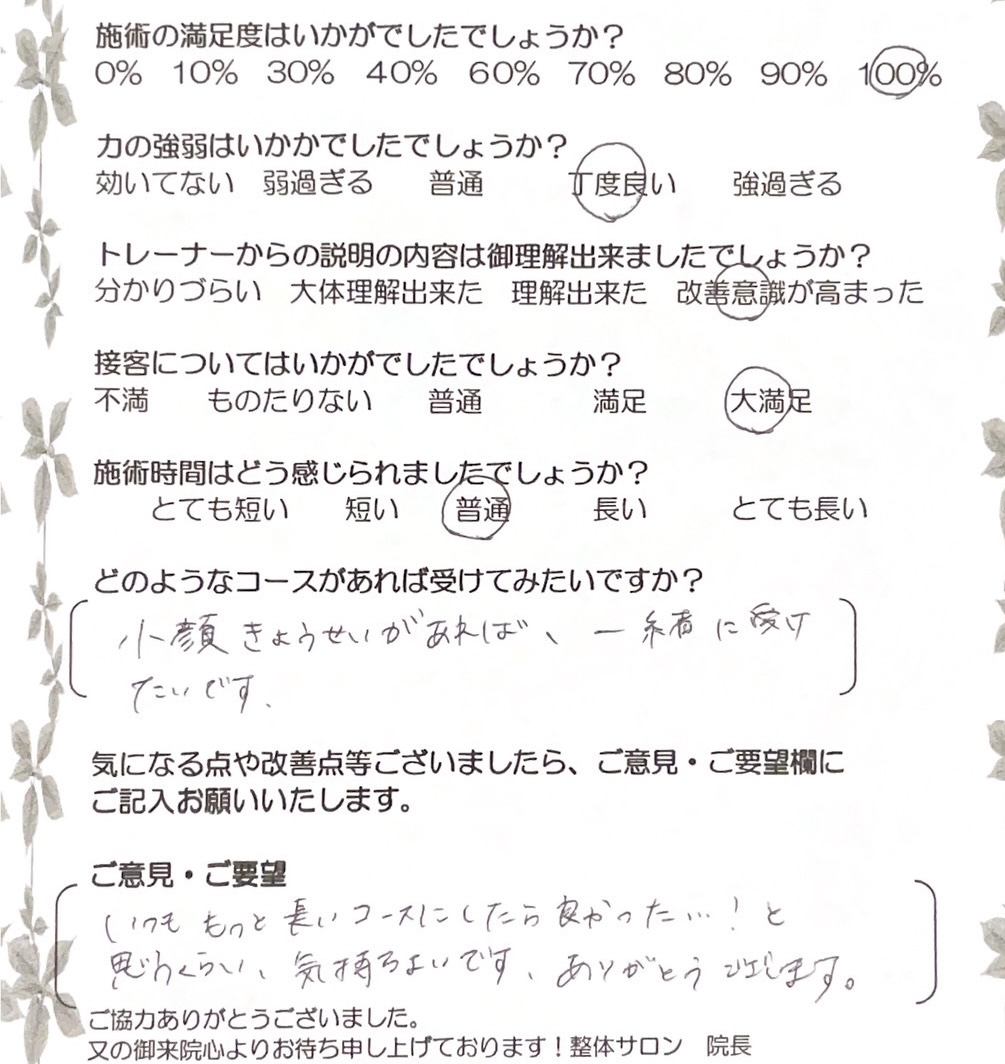 施術の満足度はいかがでしたでしょうか？
0% 10% 30% 40% 60% 70% 80% 90% 100%
力の強弱はいかかでしたでしょうか？
効いてない 弱過ぎる 普通 丁度良い 強過ぎる
トレーナーからの説明の内容は御理解出来ましたでしょうか？
分かりづらい 大体理解出来た 理解出来た 改善意識が高まった
接客についてはいかがでしたでしょうか？
不満 ものたりない 普通 満足 大満足
施術時間はどう感じられましたでしょうか？
とても短い 短い 普通 長い とても長い
どのようなコースがあれば受けてみたいですか？
小顔きょうせいがあれば、一緒に受け
たいです.
気になる点や改善点等ございましたら、ご意見・ご要望欄に
ご記入お願いいたします。
ご意見・ご要望
いつももっと長いコースにしたら良かった…！と
思うくらい、気持ちよいです、ありがとうございます。
ご協力ありがとうございました。
又の御来院心よりお待ち申し上げております！整体サロン 院長